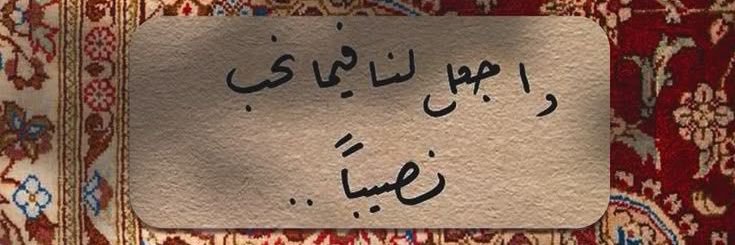 واجعل لنا فيما نحب
نصيباً ..